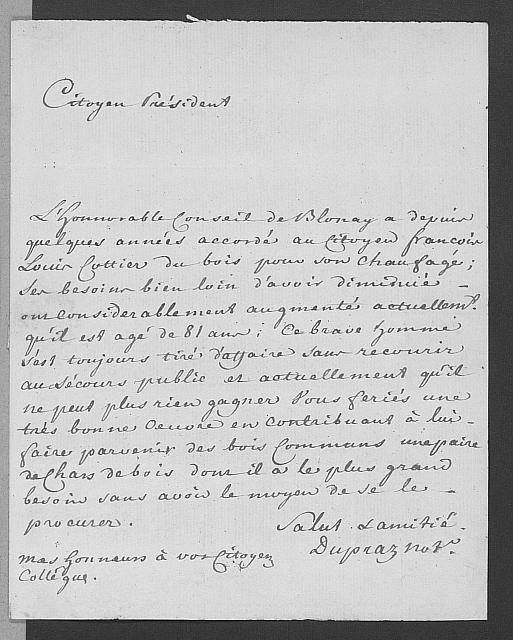 Citoyen Président
L'honnorable Conseil de Blonay a depuis
quelques années accordé au Citoyen francois
Louis Cottier du bois pour son chaufagé ;
ses besoins bien loin d'avoir diminué -
ont considerablement augmenté actuellemt.
qu'il est agé de 81 ans ; Ce brave homme
s'est toujours tiré d'affaire sans recourir
au sécours public et actuellement qu'il
ne peut plus rien gagner Vous feriés une
très bonne Oeuvre en contribuant à lui -
faire parvenir des bois Communs une paire
de Chars de bois dont il a le plus grand
besoin sans avoir le moyen de se le -
procurer .
Salut & amitié .
Dupraz not.
mes honneurs à vos Citoyens
Collègue .